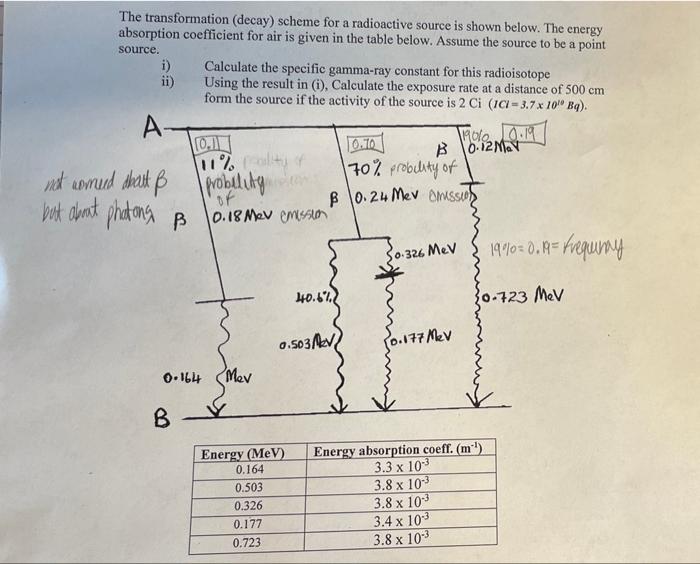 The transformation (decay) scheme for a radioactive source is shown below. The energy
absorption coefficient for air is given in the table below. Assume the source to be a point
source.
i) Calculate the specific gamma-ray constant for this radioisotope
ii) Using the result in (i), Calculate the exposure rate at a distance of 500 cm
form the source if the activity of the source is 2 Ci (1Ci = 3.7 x 10¹⁰ Bq).
A
0.11
0.70
19%
0.19
β 0.12 MeV
11%
probility
of
β 0.18 MeV emission
70% probility of
β 0.24 MeV emission
not worried about β
but about photons
0.326 MeV
19% = 0.19 = frequency
40.6%
0.723 MeV
0.503 MeV
0.177 MeV
0.164 MeV
B
Energy (MeV) Energy absorption coeff. (m⁻¹)
0.164 3.3 x 10⁻³
0.503 3.8 x 10⁻³
0.326 3.8 x 10⁻³
0.177 3.4 x 10⁻³
0.723 3.8 x 10⁻³